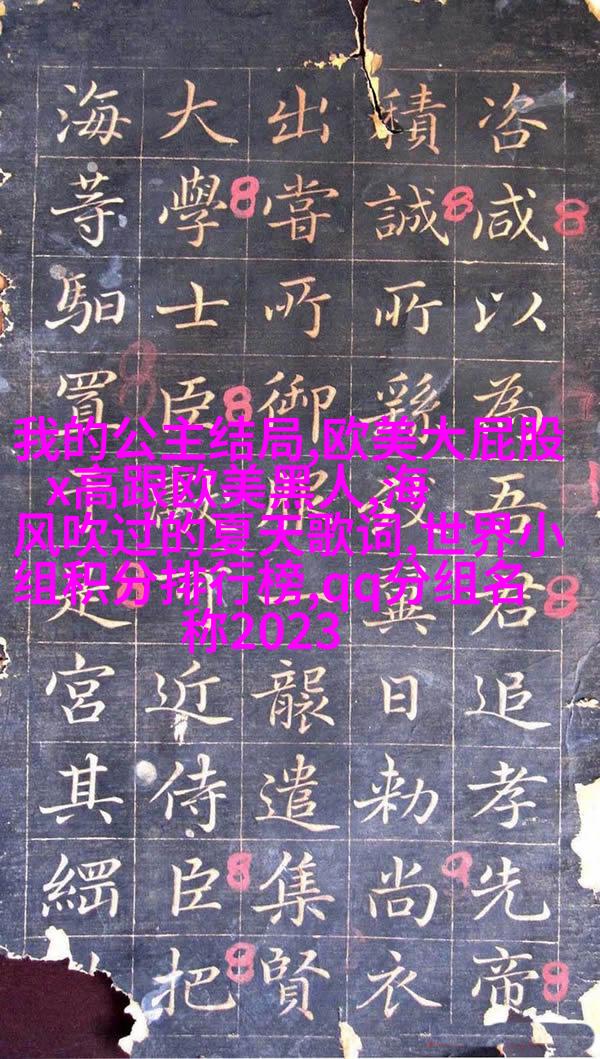 咨咸以為吾君追孝先帝
積誠所翼日勑尚衣
出嘗所御襲遣集賢
大學士臣近侍臣把
海等馹置宮其綱
我的公主结局,欧美大屁股
x高跟欧美黑人,海
风吹过的夏天歌词,世界小
组积分排行榜,qq分组名
称2023